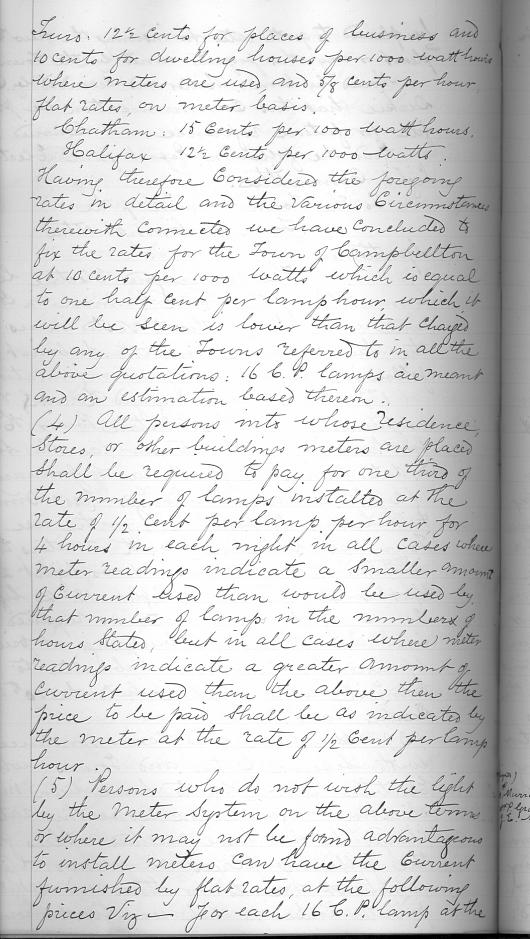 Truro. 12½ cents for places of business and
10 cents for dwelling houses per 1000 watt hours
where meters are used and 5/8 cents per hour,
flat rates, on meter basis.
Chatham: 15 Cents per 1000 watt hours.
Halifax 12½ Cents per 1000 watts.
Having therefore Considered the foregoing
rates in detail and the various Circumstances
therewith Connected we have Concluded to
fix the rates for the Town of Campbellton
at 10 cents per 1000 watts which is equal
to one half cent per lamp hour which it
will be seen is lower than that charged
by any of the Towns referred to in all the
above quotations: 16 C.P. lamps are meant
and an estimation based thereon.
(4) All persons into whose residence,
Stores, or other buildings meters are placed
shall be required to pay for one third of
the number of lamps installed at the
rate of ½ cent per lamp per hour for
4 hours in each night in all cases where
meter readings indicate a smaller amount
of Current used than would be used by
that number of lamp in the number of
hours Stated, but in all cases where meter
readings indicate a greater amount of
Current used than the above then the
price to be paid Shall be as indicated by
the meter at the rate of ½ Cent per lamp
hour.
(5) Persons who do not wish the light
by the Meter System on the above terms
or where it may not be found advantageous
to install meters Can have the Current
furnished by flat rates, at the following
prices Viz — For each 16 C.P. lamp at the